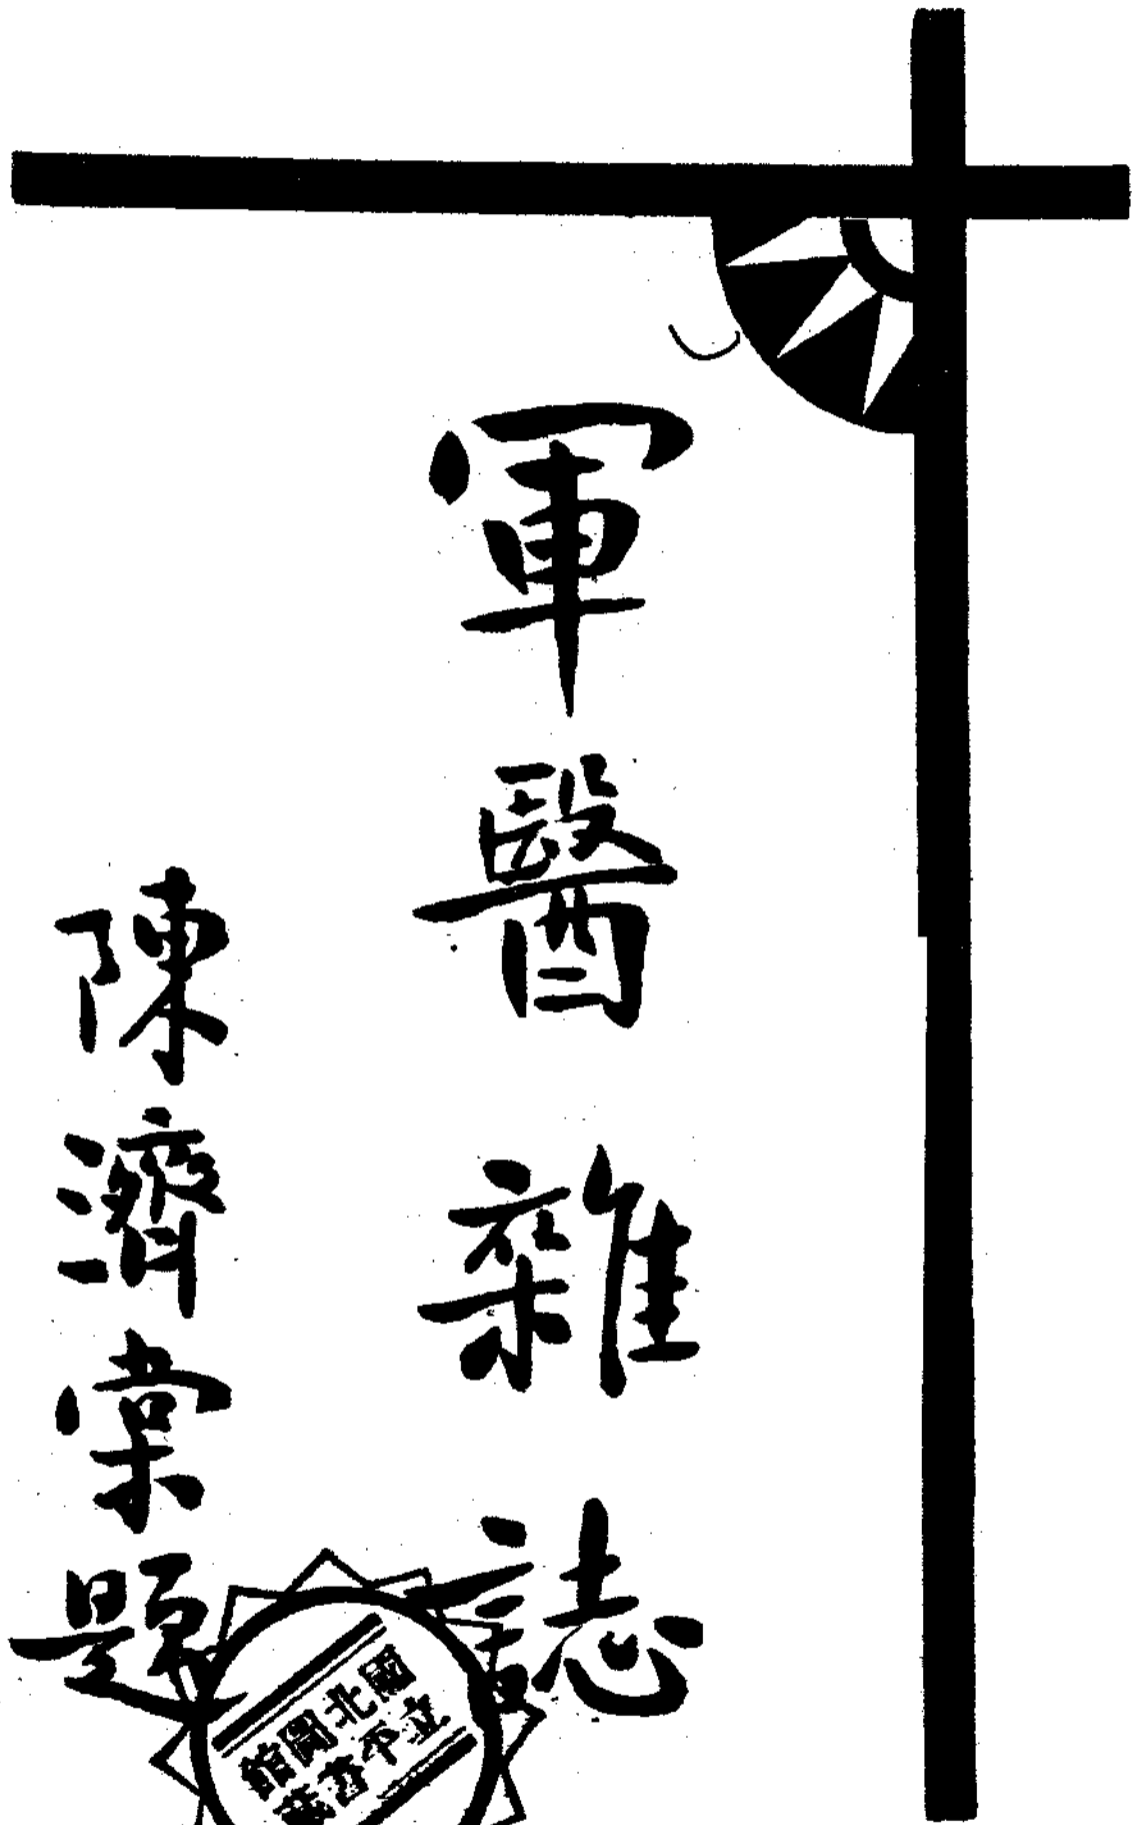 軍醫雜誌
陳濟棠題
國立
北平
圖書
館藏